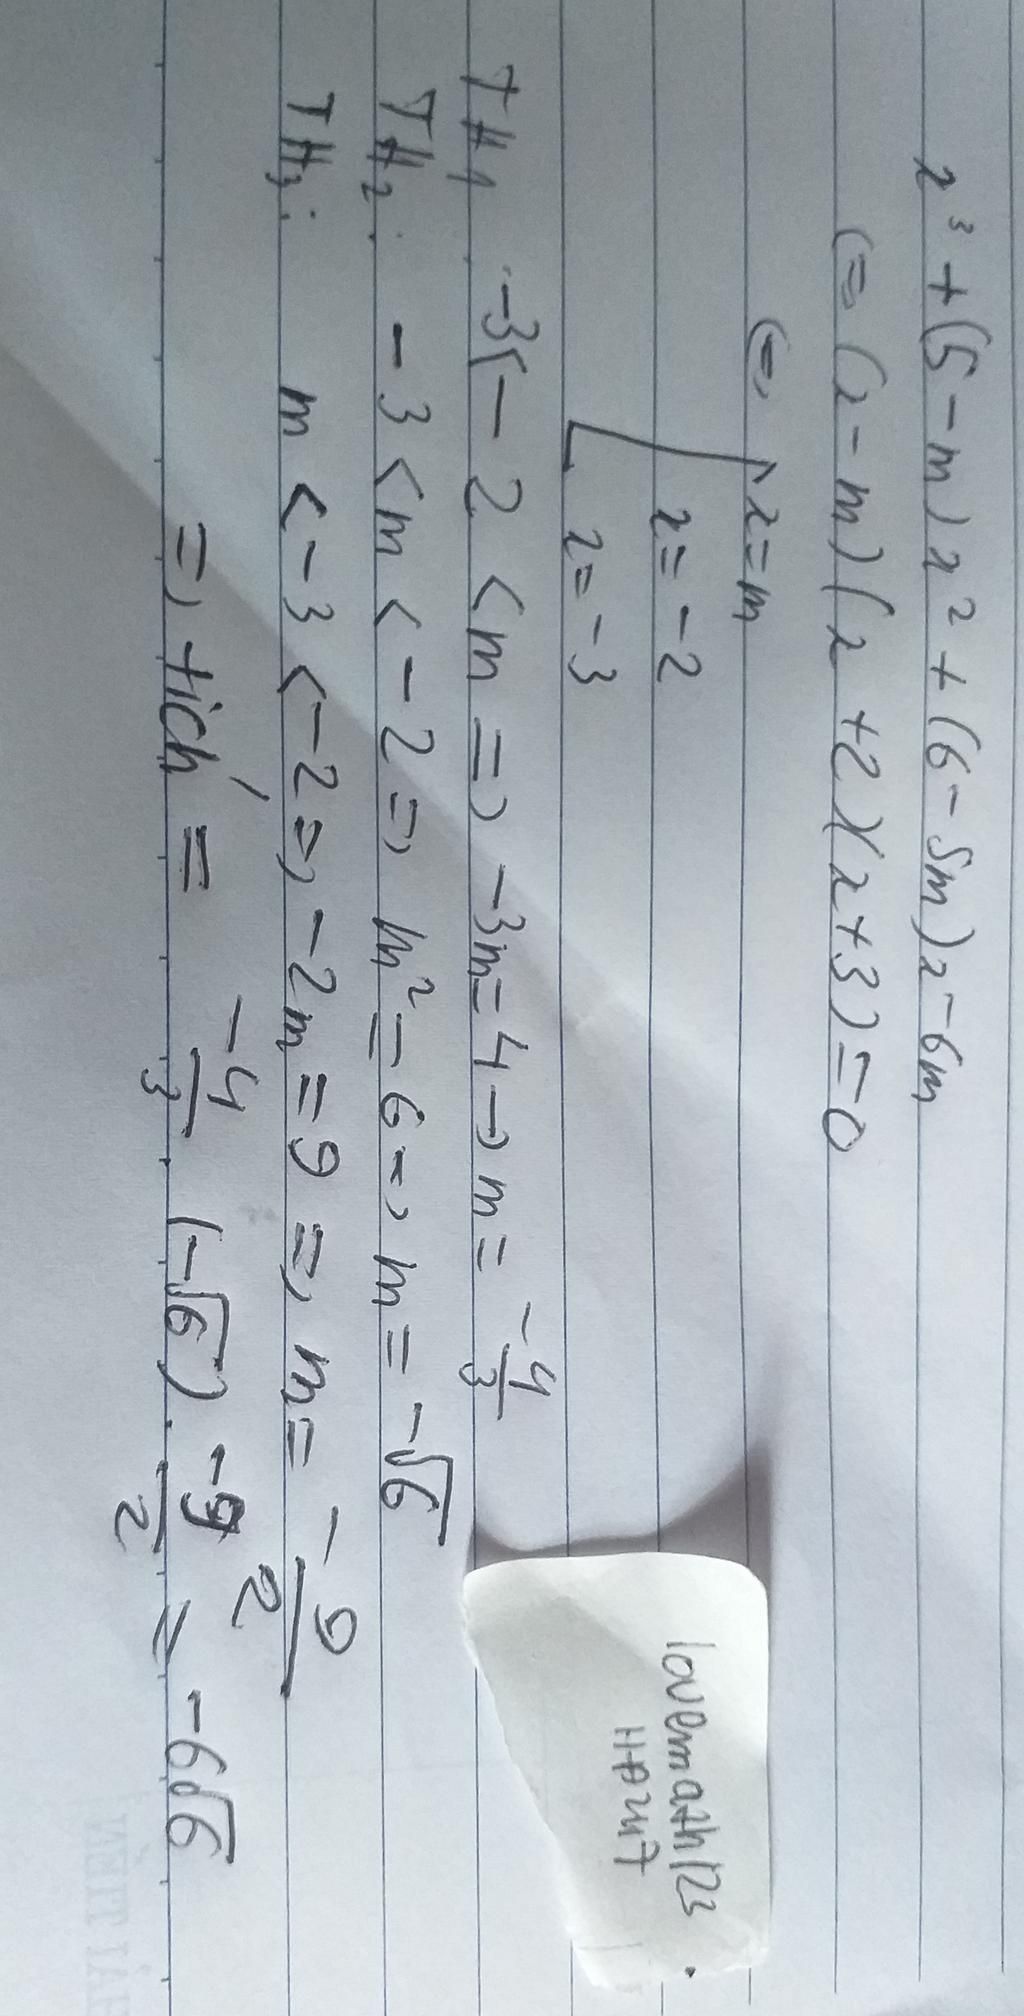 x³ + (5 - m) x² + (6 - 5m)x - 6m
(=) (x - m) (x + 2)(x + 3) = 0
(=) [ x = m
x = -2
x = -3
TH1 : -3 < -2 < m => -3m = 4 -> m = -4/3
TH2 : -3 < m < -2 => m² = 6 => m = -√6
TH3 : m < -3 < -2 => -2m = 9 => m = -9/2
=> tích = -4/3 (-√6) . -9/2 = -6√6
lovemath123